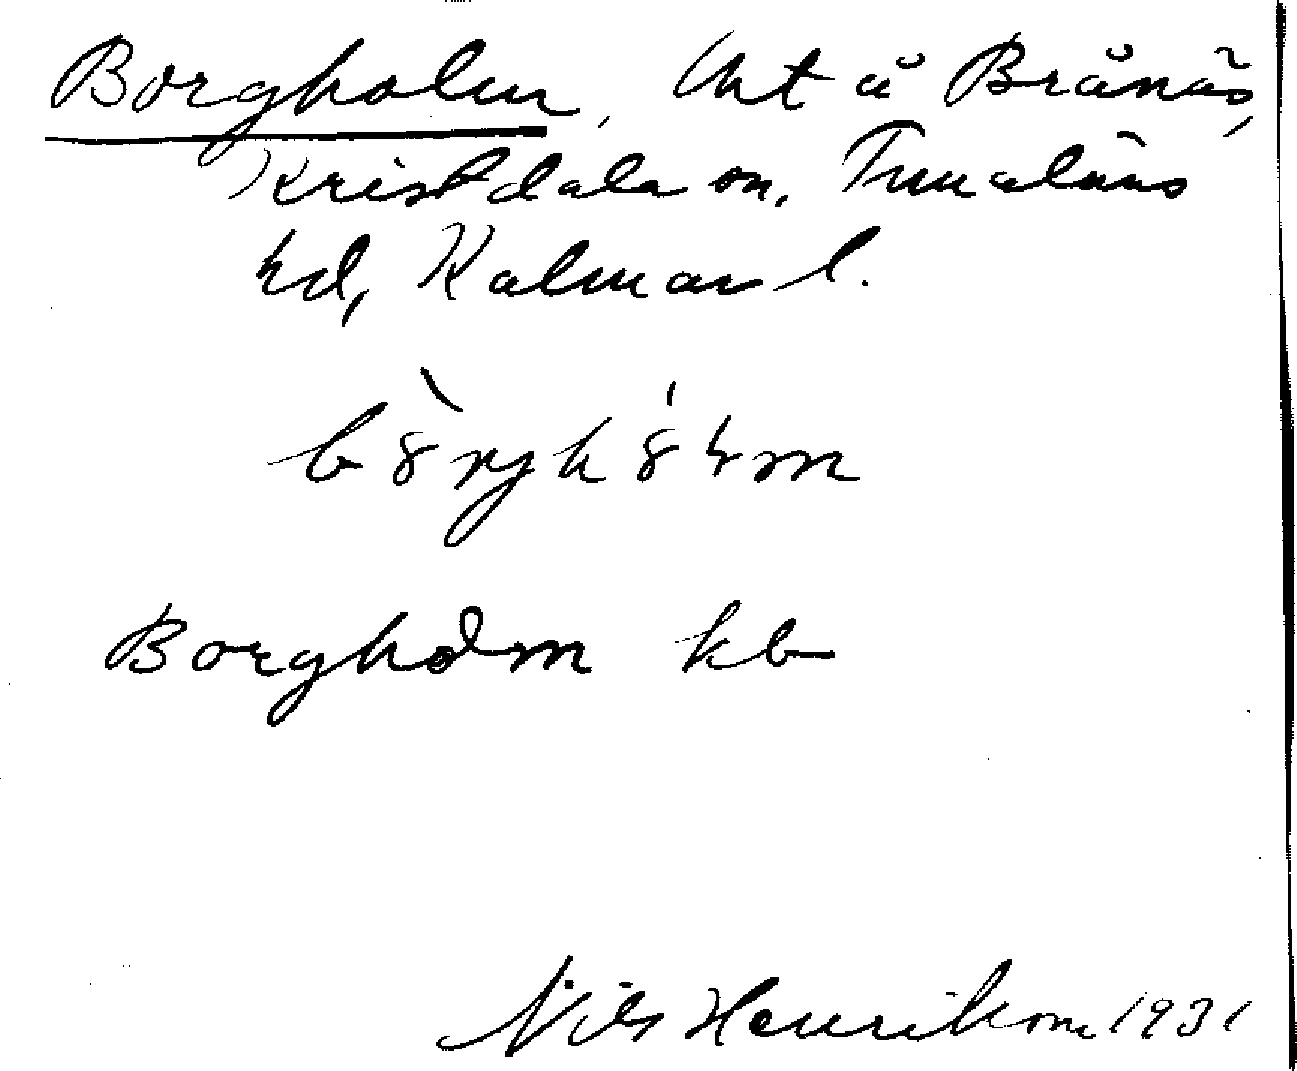 Borgholm, Unt å Brånäs,
Kristdala sn, Tunaläns
hd, Kalmar l.
Borgholm kb
Nils Henrikson 1931